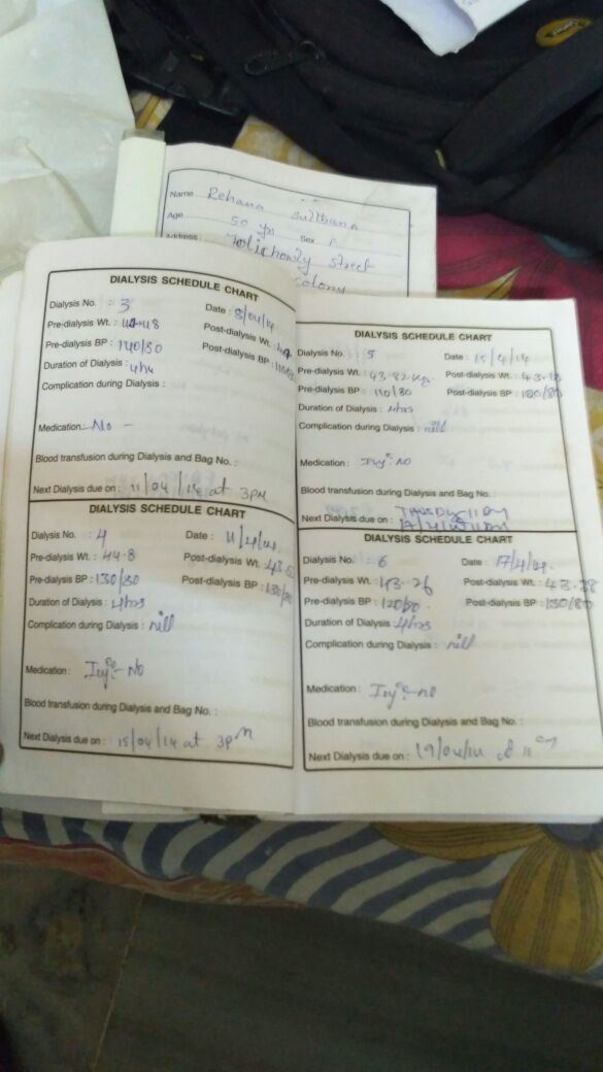 Name Rehana Sulthana
Age 50 yrs Sex F
Address: Tolichowly street
colony
DIALYSIS SCHEDULE CHART
Dialysis No. : 3 Date :
Pre-dialysis Wt. : Post-dialysis Wt. :
Pre-dialysis BP : 140/80 Post-dialysis BP :
Duration of Dialysis :
Complication during Dialysis :
Medication: No -
Blood transfusion during Dialysis and Bag No. :
Next Dialysis due on : 11/04/14 at 3PM
DIALYSIS SCHEDULE CHART
Dialysis No. : 4 Date :
Pre-dialysis Wt. : 44.8 Post-dialysis Wt. :
Pre-dialysis BP : 130/80 Post-dialysis BP :
Duration of Dialysis : 4hrs
Complication during Dialysis : nill
Medication : Inj:- No
Blood transfusion during Dialysis and Bag No. :
Next Dialysis due on : 15/04/14 at 3pm
DIALYSIS SCHEDULE CHART
Dialysis No. : 5 Date : 15/4/14
Pre-dialysis Wt. : 43.82 kg. Post-dialysis Wt. :
Pre-dialysis BP : 110/80 Post-dialysis BP :
Duration of Dialysis : 4hrs
Complication during Dialysis : nill
Medication : Inj:- NO
Blood transfusion during Dialysis and Bag No. :
Next Dialysis due on :
DIALYSIS SCHEDULE CHART
Dialysis No. : 6 Date : 17/4/14
Pre-dialysis Wt. : 43.26 Post-dialysis Wt. :
Pre-dialysis BP : Post-dialysis BP : 130/80
Duration of Dialysis : 4hrs
Complication during Dialysis : nill
Medication : Inj:- no
Blood transfusion during Dialysis and Bag No. :
Next Dialysis due on : 19/04/14